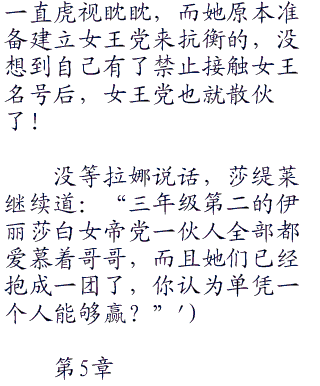 一直虎视眈眈，而她原本准
备建立女王党来抗衡的，没
想到自己有了禁止接触女王
名号后，女王党也就散伙
了！
没等拉娜说话，莎缇莱
继续道：“三年级第二的伊
丽莎白女帝党一伙人全部都
爱慕着哥哥，而且她们已经
抱成一团了，你认为单凭一
个人能够赢？”′）
第5章